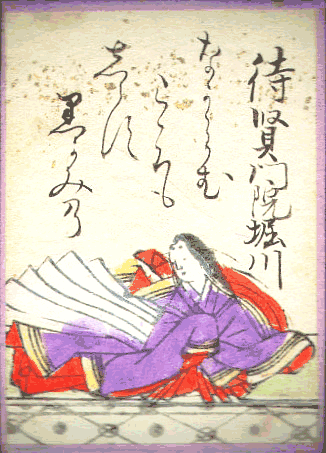 待賢門院堀川
なかゝらむ
こゝろも
志らす
黒かみの